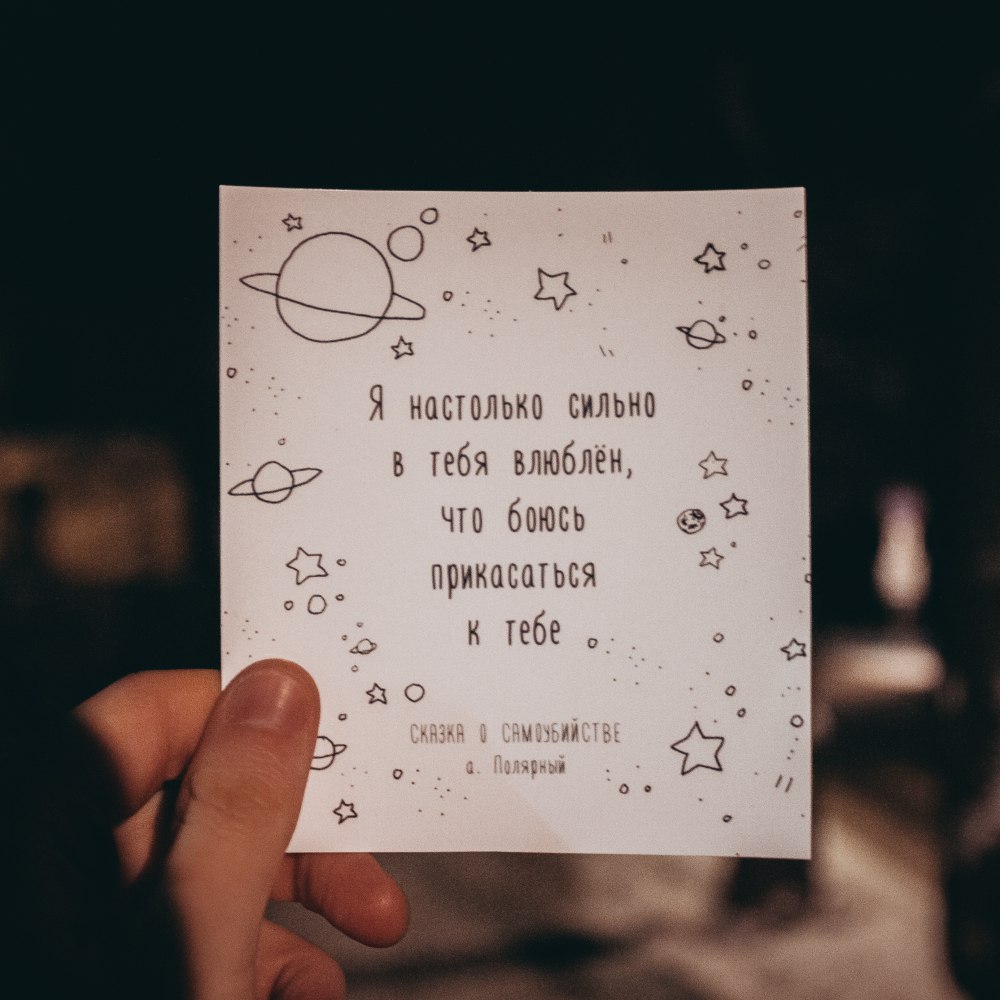 Я настолько сильно
в тебя влюблён,
что боюсь
прикасаться
к тебе
СКАЗКА О САМОУБИЙСТВЕ
а. Полярный